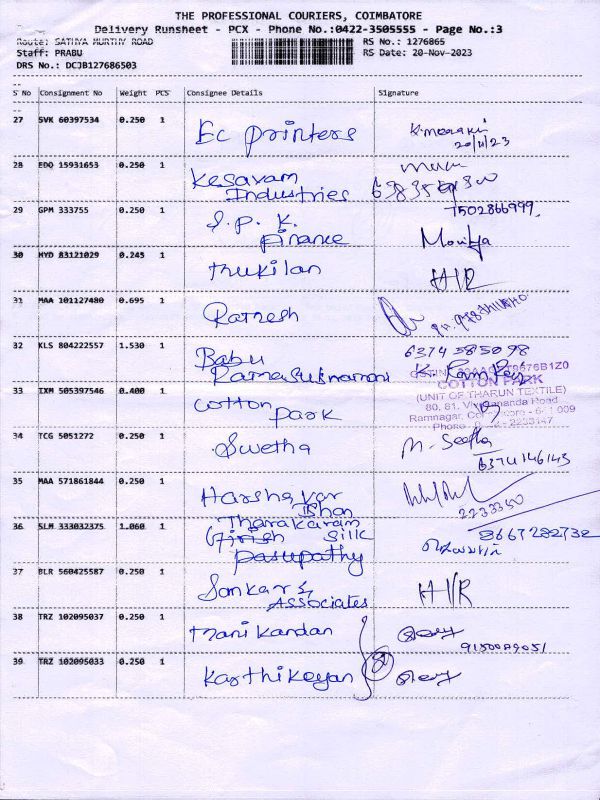 THE PROFESSIONAL COURIERS, COIMBATORE
Delivery Runsheet - PCX - Phone No.:0422-3505555 - Page No.:3
Route: SATHYA MURTHY ROAD RS No.: 1276865
Staff: PRABU RS Date: 20-Nov-2023
DRS No.: DCJB127686503
S No Consignment No Weight PCS Consignee Details Signature
27 SVK 60397534 0.250 1 Ec printers
20/11/23
28 EDQ 15931653 0.250 1 Kesavam
Industries
29 GPM 333755 0.250 1 S.P.K. 7502866999
Finance
30 HYD 83121029 0.245 1 Mukilan H/R
31 MAA 101127480 0.695 1 Ratnesh
32 KLS 804222557 1.530 1 Babu 6374585098
Ramasubramani
33 IXM 505397546 0.400 1 Cotton
Park
COTTON PARK
(UNIT OF THARUN TEXTILE)
80, 81, Road
Ramnagar,
Phone
34 TCG 5051272 0.250 1 Swetha
6374146143
35 MAA 571861844 0.250 1 Harshavar
2233350
36 SLM 333032375 1.060 1 Tharakaram
Girish Silk 8667282732
Pasupathy
37 BLR 560425587 0.250 1 Sankar &
Associates H/R
38 TRZ 102095037 0.250 1 Manikandan
9150089051
39 TRZ 102095033 0.250 1 Karthikeyan